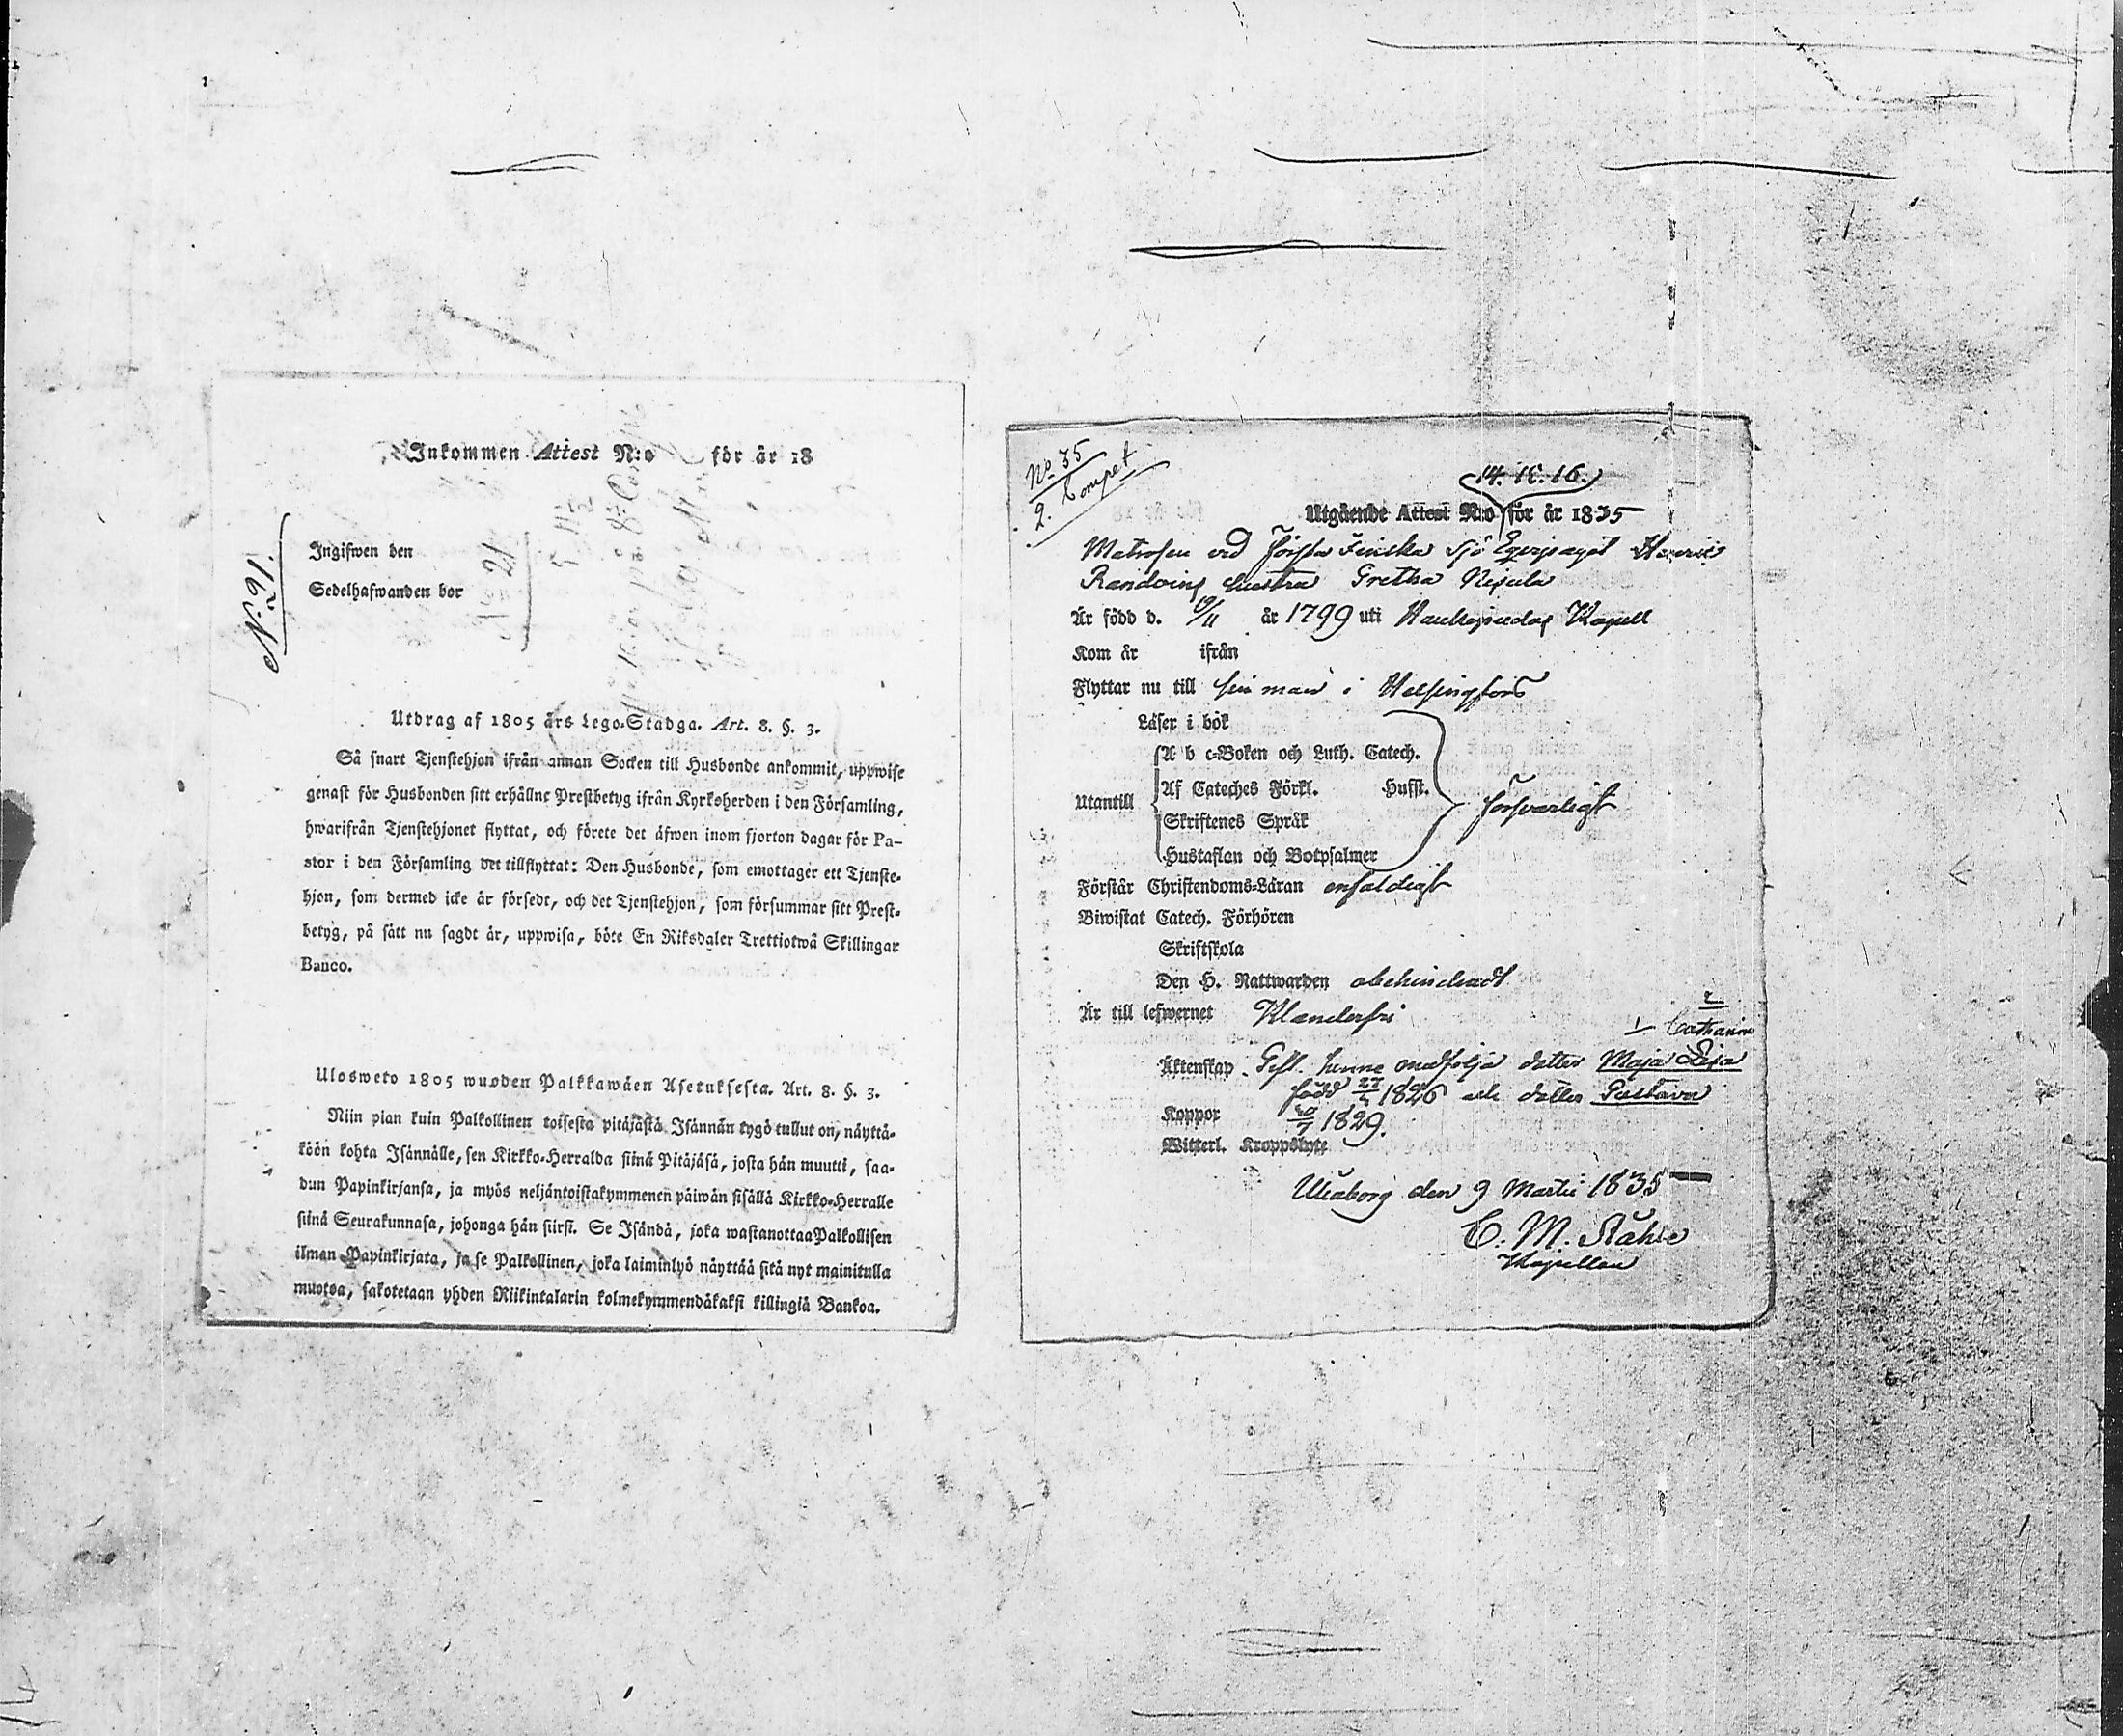 Inkommen Attest N:o för år 18
N:o 21.
Ingifwen den
Sedelhafwanden bor
No 21
Utdrag af 1805 års Lego-Stadga. Art. 8. §. 3.
Så snart Tjenstehjon ifrån annan Socken till Husbonde ankommit, uppwise
genast för Husbonden sitt erhållne Prestbetyg ifrån Kyrkoherden i den Församling,
hwarifrån Tjenstehjonet flyttat, och förete det äfwen inom fjorton dagar för Pa-
stor i den Församling det tillflyttat: Den Husbonde, som emottager ett Tjenste-
hjon, som dermed icke är försedt, och det Tjenstehjon, som försummar sitt Prest-
betyg, på sätt nu sagdt är, uppwisa, böte En Riksdaler Trettiotwå Skillingar
Banco.
Ulosweto 1805 wuoden Palkkawäen Asetuksesta. Art. 8. §. 3.
Niin pian kuin Palkollinen toisesta pitäjästä Isännän tygö tullut on, näyttä-
köön kohta Isännälle, sen Kirkko-Herralda siinä Pitäjäsä, josta hän muutti, saa-
dun Papinkirjansa, ja myös neljäntoistakymmenen päiwän sisällä Kirkko-Herralle
siinä Seurakunnasa, johonga hän siirsi. Se Isändä, joka wastanottaa Palkollisen
ilman Papinkirjata, ja se Palkollinen, joka laiminlyö näyttää sitä nyt mainitulla
muotoa, sakotetaan yhden Riikintalarin kolmekymmendäkaksi killingiä Bankoa.
No 35
2. Compet
14. 15. 16.
Utgående Attest N:o för år 1835
Matrosen vid Första Finska Sjö Equipaget Henric
hustru Gretha Nipula
Är född d. 19/11 år 1799 uti Haukipudas Kapell
Kom år ifrån
Flyttar nu till sin man i Helsingfors
Läser i bok
A b c-Boken och Luth. Catech.
Utantill Af Cateches Förkl. Husft. försvarligt
Skriftenes Språk
Hustaflan och Botpsalmer
Förstår Christendoms-Läran enfaldigt
Biwistat Catech. Förhören
Skriftskola
Den H. Nattwarden obehindradt
Är till lefwernet Klanderfri
2
1 Catharina
Äktenskap Gift. henne medfölja dotter Maja Lisa
född 1826 och dotter Gustava
Koppor 1829.
Witterl. Kroppslyte
Uleåborg den 9 Martii 1835
C. M. Ståhle
Kapellan